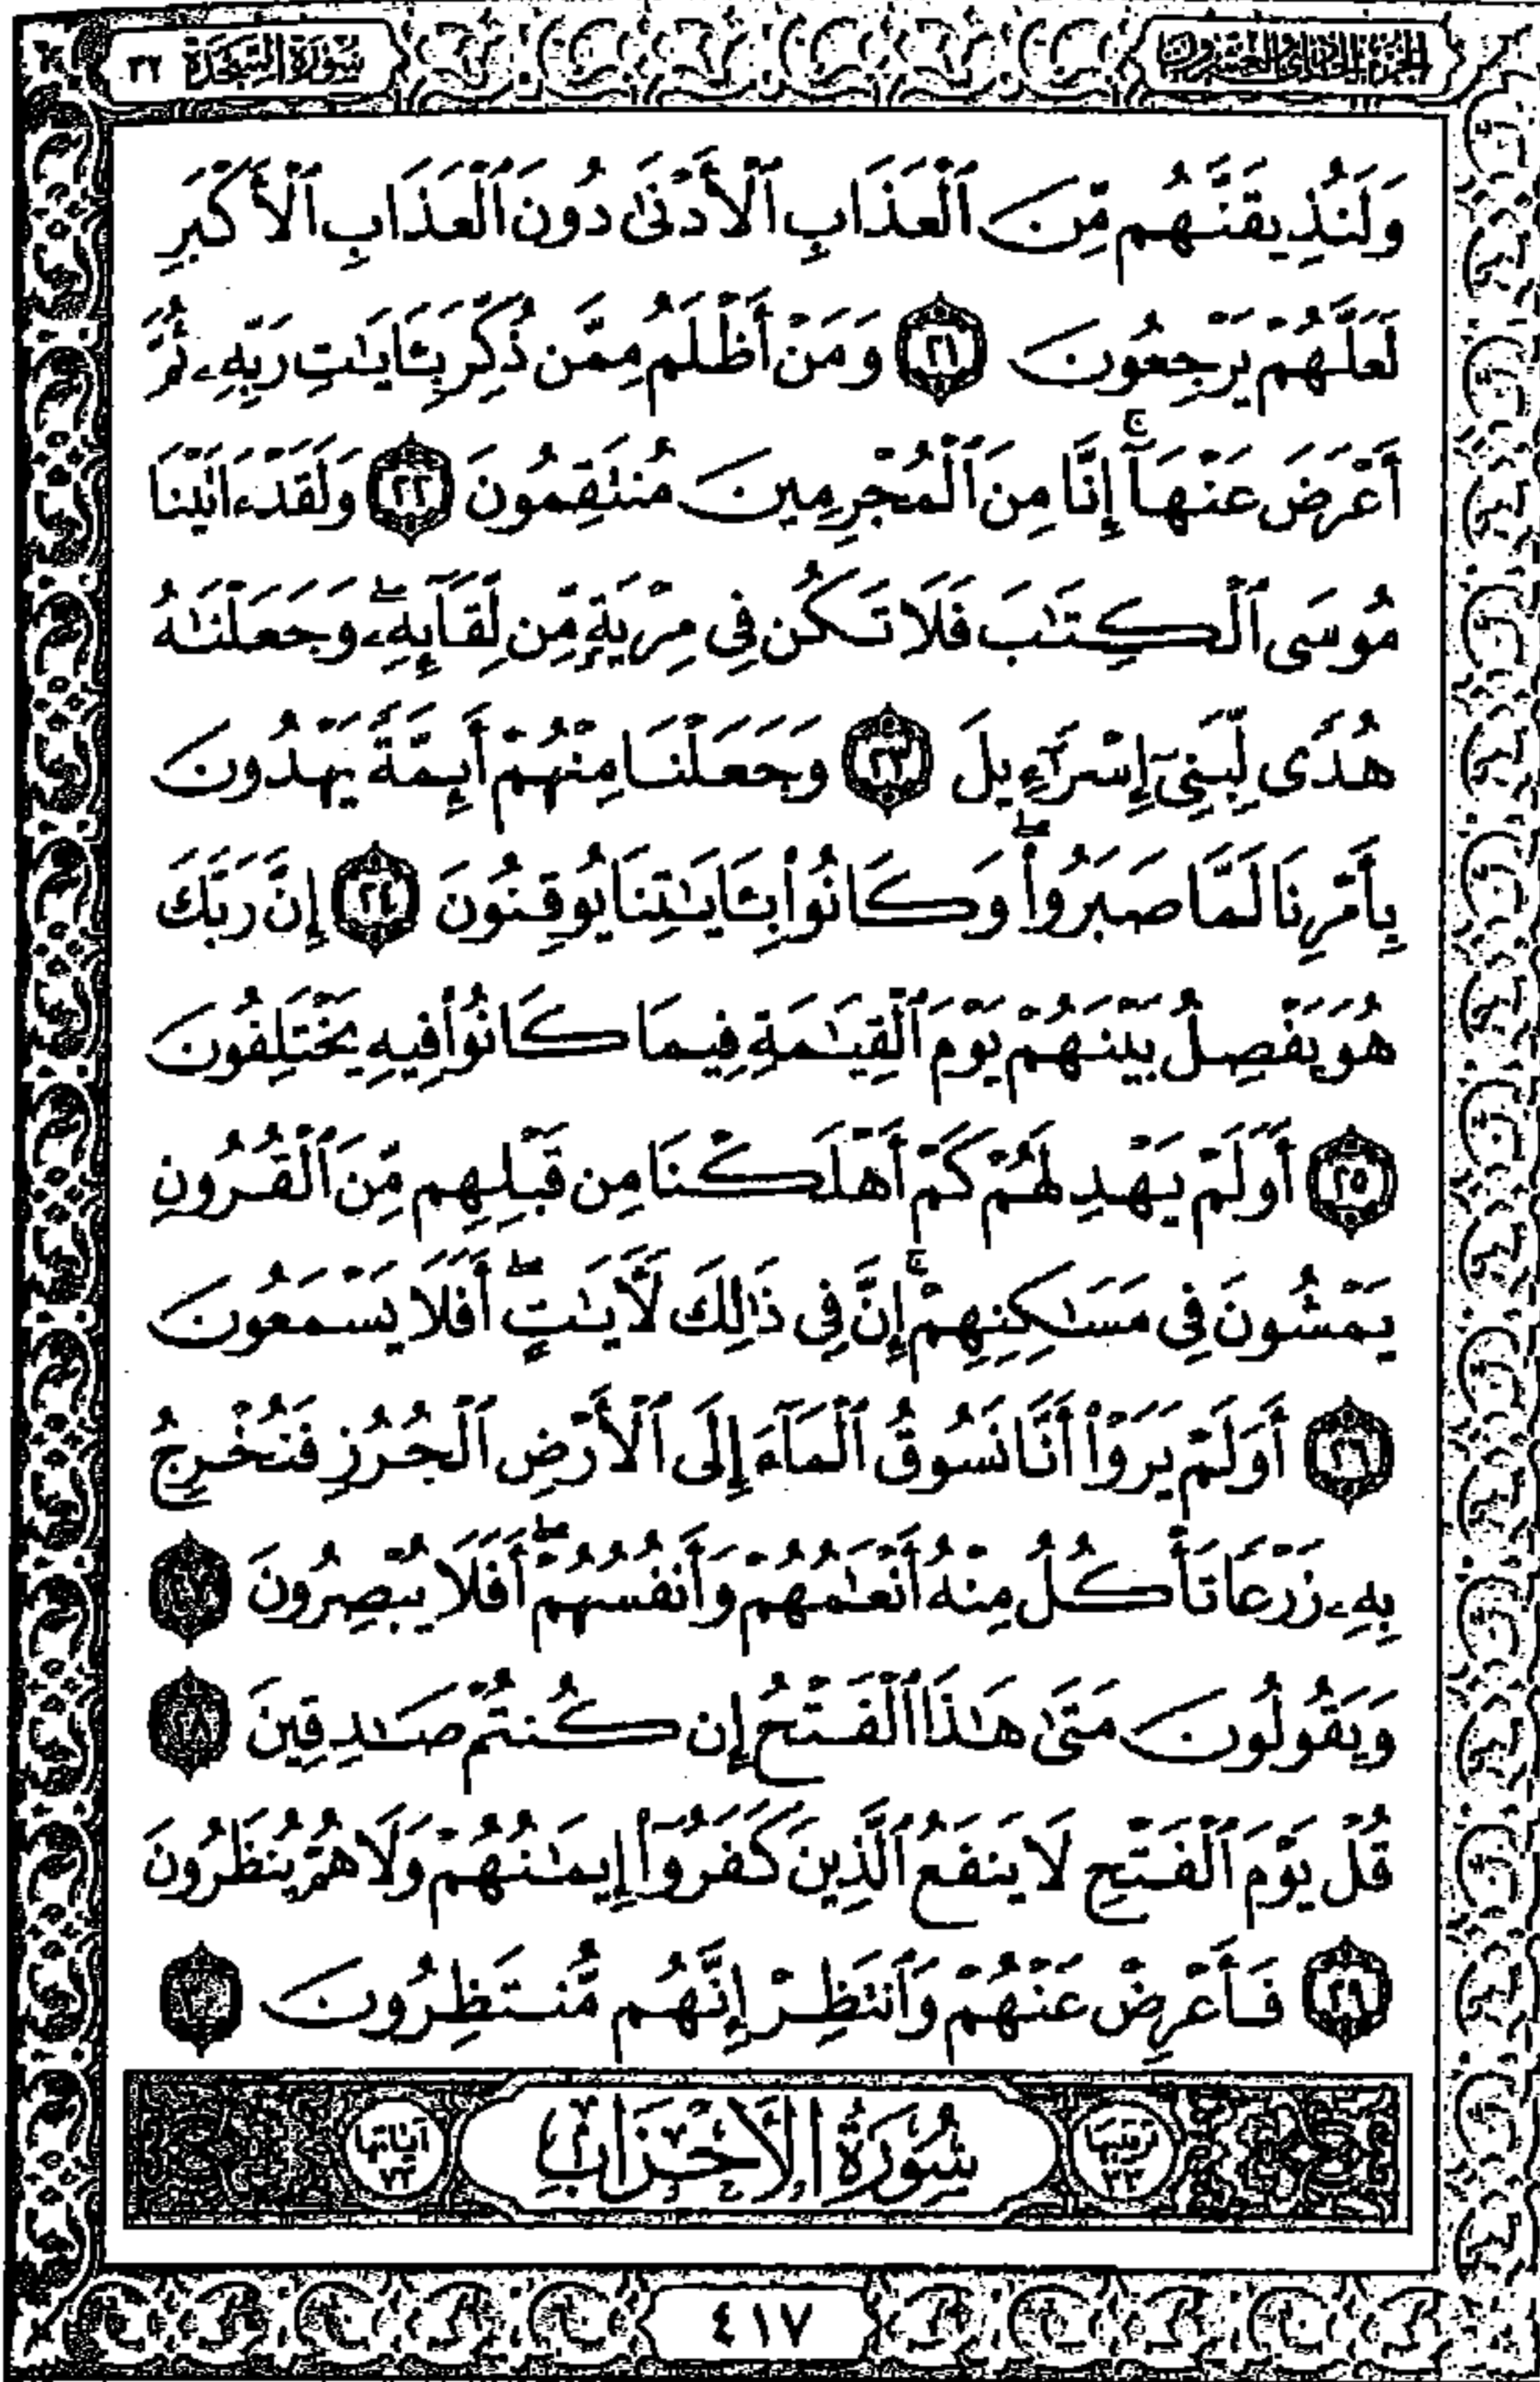 الجزء الحادي والعشرون
سُورَةُ السَّجْدَة ٣٢
وَلَنُذِيقَنَّهُم مِّنَ ٱلْعَذَابِ ٱلْأَدْنَىٰ دُونَ ٱلْعَذَابِ ٱلْأَكْبَرِ
لَعَلَّهُمْ يَرْجِعُونَ ٢١ وَمَنْ أَظْلَمُ مِمَّن ذُكِّرَ بِـَٔايَـٰتِ رَبِّهِۦ ثُمَّ
أَعْرَضَ عَنْهَآ ۚ إِنَّا مِنَ ٱلْمُجْرِمِينَ مُنتَقِمُونَ ٢٢ وَلَقَدْ ءَاتَيْنَا
مُوسَى ٱلْكِتَـٰبَ فَلَا تَكُن فِى مِرْيَةٍ مِّن لِّقَآئِهِۦ ۖ وَجَعَلْنَـٰهُ
هُدًى لِّبَنِىٓ إِسْرَٰٓءِيلَ ٢٣ وَجَعَلْنَا مِنْهُمْ أَئِمَّةً يَهْدُونَ
بِأَمْرِنَا لَمَّا صَبَرُوا۟ ۖ وَكَانُوا۟ بِـَٔايَـٰتِنَا يُوقِنُونَ ٢٤ إِنَّ رَبَّكَ
هُوَ يَفْصِلُ بَيْنَهُمْ يَوْمَ ٱلْقِيَـٰمَةِ فِيمَا كَانُوا۟ فِيهِ يَخْتَلِفُونَ
٢٥ أَوَلَمْ يَهْدِ لَهُمْ كَمْ أَهْلَكْنَا مِن قَبْلِهِم مِّنَ ٱلْقُرُونِ
يَمْشُونَ فِى مَسَـٰكِنِهِمْ ۚ إِنَّ فِى ذَٰلِكَ لَـَٔايَـٰتٍ ۖ أَفَلَا يَسْمَعُونَ
٢٦ أَوَلَمْ يَرَوْا۟ أَنَّا نَسُوقُ ٱلْمَآءَ إِلَى ٱلْأَرْضِ ٱلْجُرُزِ فَنُخْرِجُ
بِهِۦ زَرْعًا تَأْكُلُ مِنْهُ أَنْعَـٰمُهُمْ وَأَنفُسُهُمْ ۖ أَفَلَا يُبْصِرُونَ ٢٧
وَيَقُولُونَ مَتَىٰ هَـٰذَا ٱلْفَتْحُ إِن كُنتُمْ صَـٰدِقِينَ ٢٨
قُلْ يَوْمَ ٱلْفَتْحِ لَا يَنفَعُ ٱلَّذِينَ كَفَرُوٓا۟ إِيمَـٰنُهُمْ وَلَا هُمْ يُنظَرُونَ
٢٩ فَأَعْرِضْ عَنْهُمْ وَٱنتَظِرْ إِنَّهُم مُّنتَظِرُونَ ٣٠
ترتيبها ٣٣ سُورَةُ الأَحْزَابِ آياتها ٧٣
٤١٧